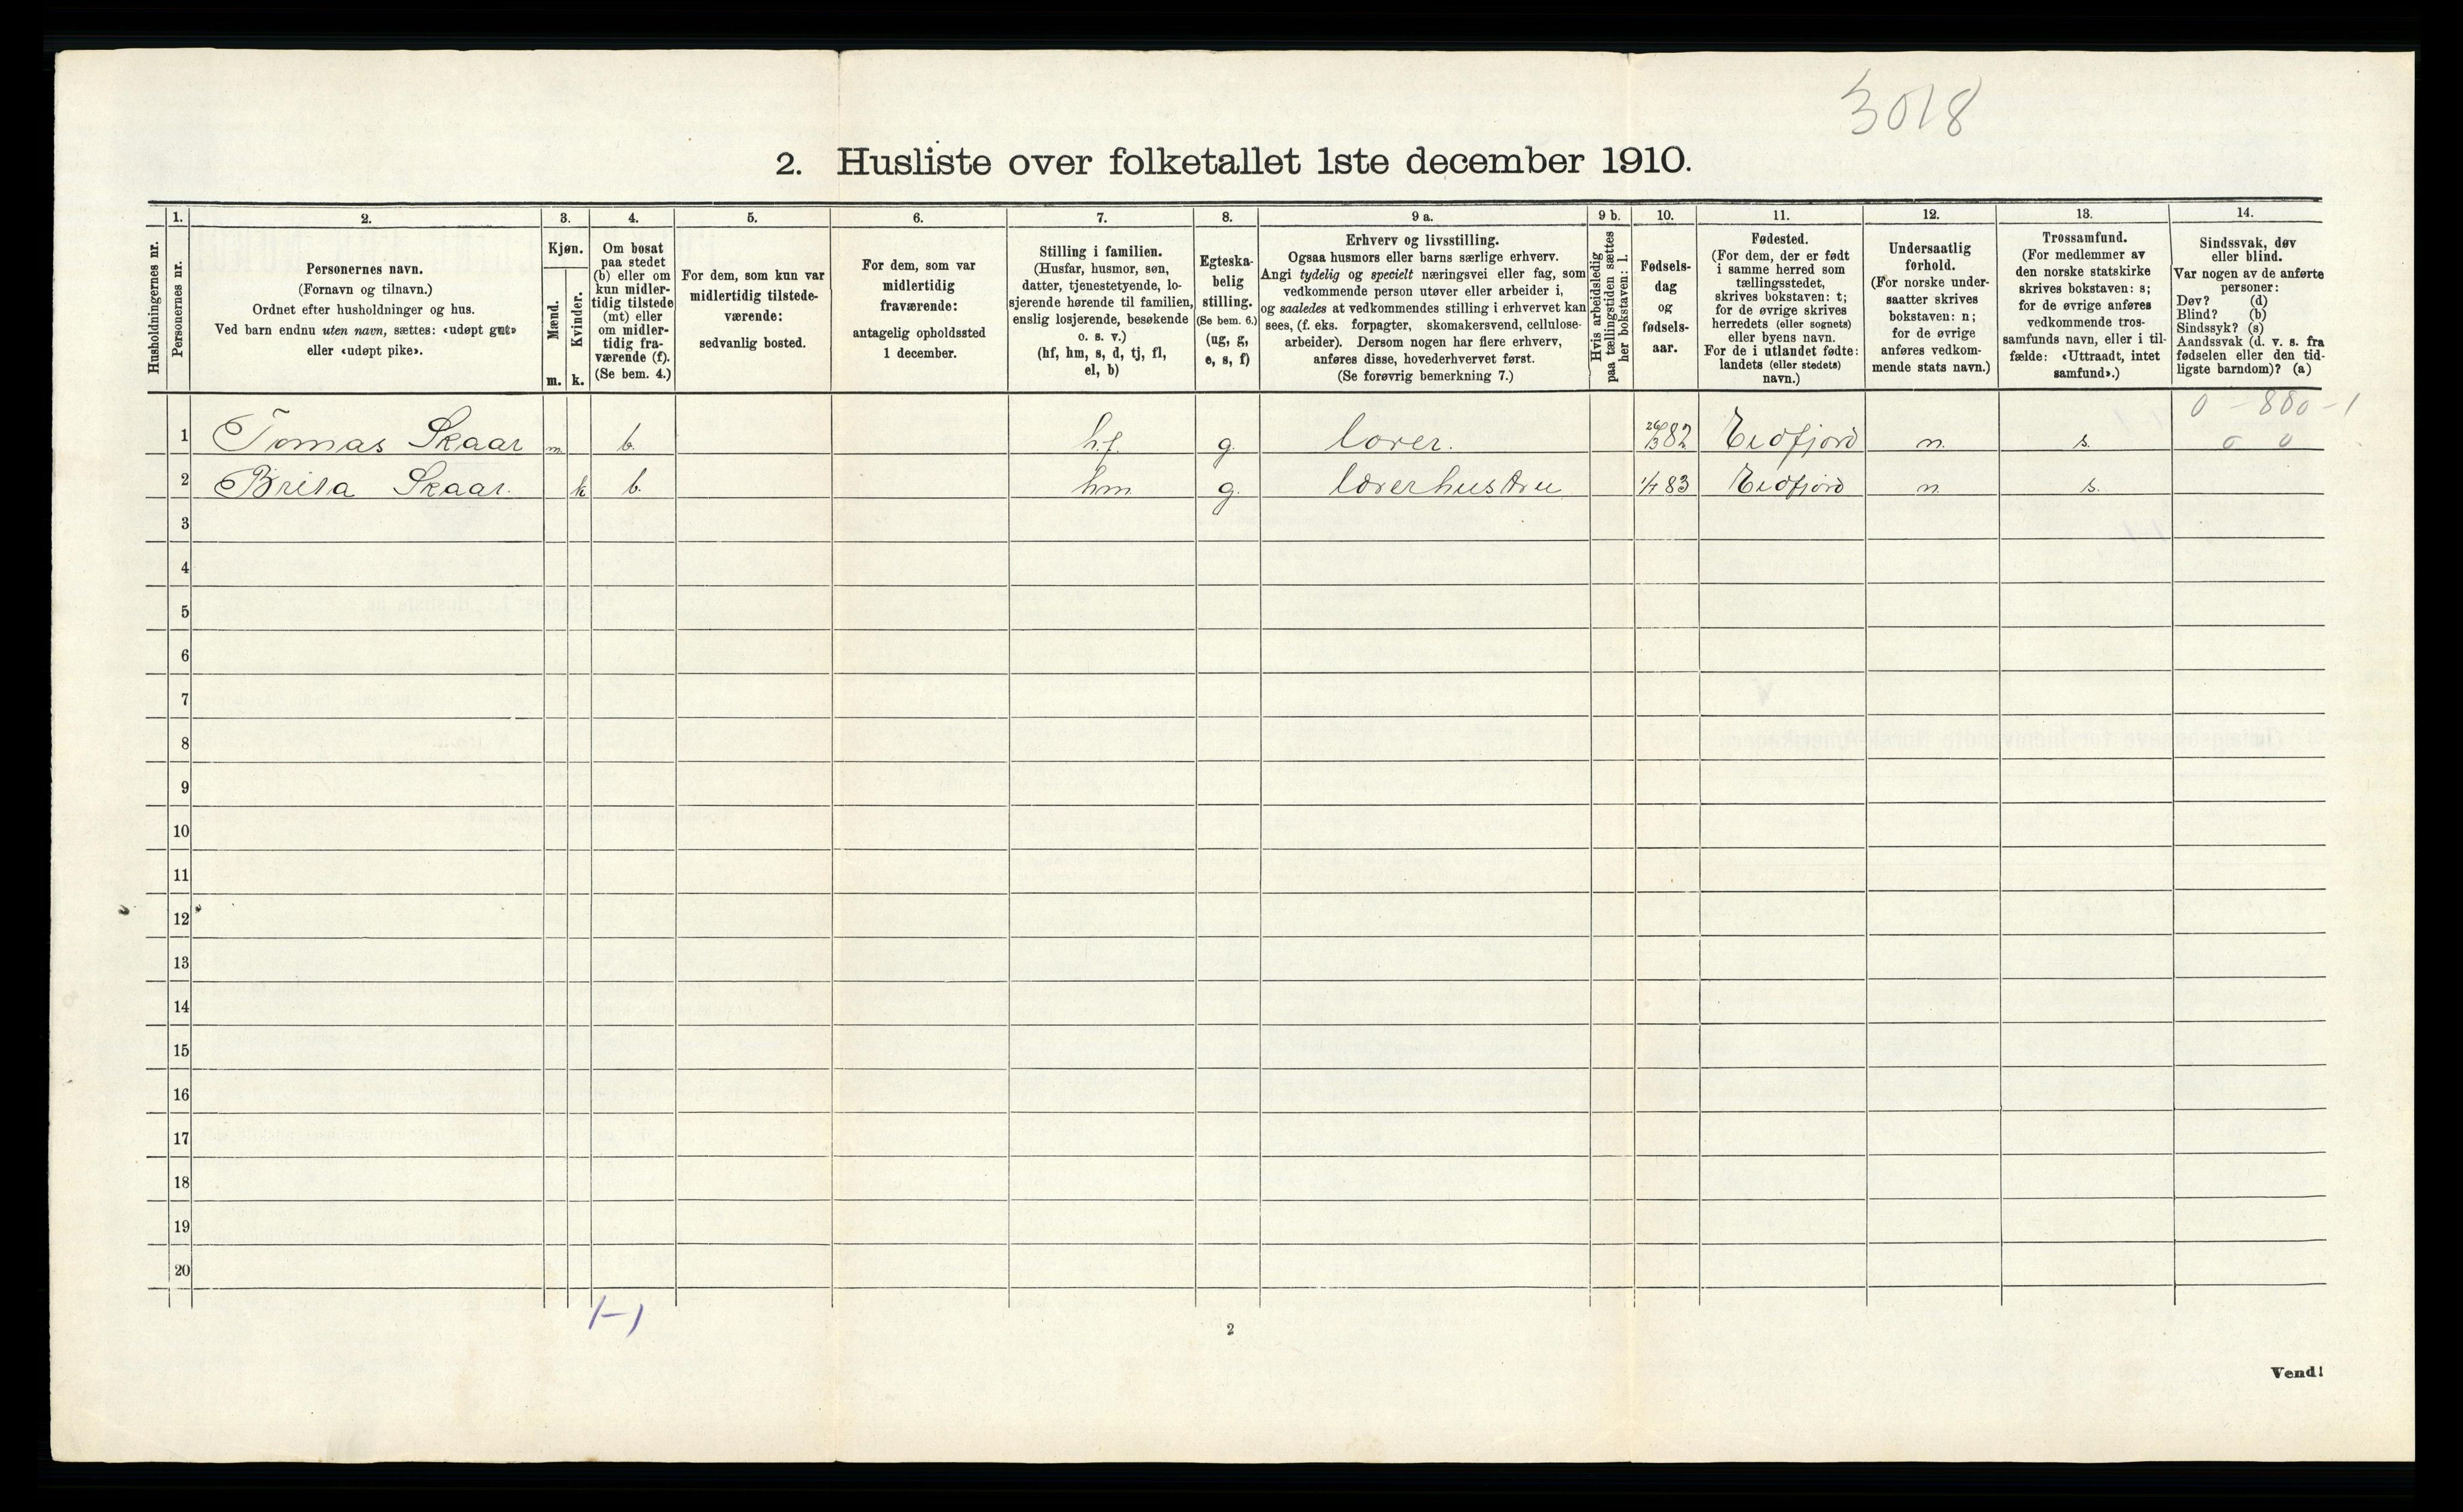 3018
2. Husliste over folketallet 1ste december 1910.
Husholdningernes nr.
1.
Personernes nr.
2.
Personernes navn.
(Fornavn og tilnavn.)
Ordnet efter husholdninger og hus.
Ved barn endnu uten navn, sættes: «udøpt gut»
eller «udøpt pike».
3.
Kjøn.
Mænd.
Kvinder.
m. k.
4.
Om bosat
paa stedet
(b) eller om
kun midler-
tidig tilstede
(mt) eller
om midler-
tidig fra-
værende (f).
(Se bem. 4.)
5.
For dem, som kun var
midlertidig tilstede-
værende:
sedvanlig bosted.
6.
For dem, som var
midlertidig
fraværende:
antagelig opholdssted
1 december.
7.
Stilling i familien.
(Husfar, husmor, søn,
datter, tjenestetyende, lo-
sjerende hørende til familien,
enslig losjerende, besøkende
o. s. v.)
(hf, hm, s, d, tj, fl,
el, b)
8.
Egteska-
belig
stilling.
(Se bem. 6.)
(ug, g,
e, s, f)
9 a.
Erhverv og livsstilling.
Ogsaa husmors eller barns særlige erhverv.
Angi tydelig og specielt næringsvei eller fag, som
vedkommende person utøver eller arbeider i,
og saaledes at vedkommendes stilling i erhvervet kan
sees, (f. eks. forpagter, skomakersvend, cellulose-
arbeider). Dersom nogen har flere erhverv,
anføres disse, hovederhvervet først.
(Se forøvrig bemerkning 7.)
9 b.
Hvis arbeidsledig
paa tællingstiden sættes
her bokstaven: l.
10.
Fødsels-
dag
og
fødsels-
aar.
11.
Fødested.
(For dem, der er født
i samme herred som
tællingsstedet,
skrives bokstaven: t;
for de øvrige skrives
herredets (eller sognets)
eller byens navn.
For de i utlandet fødte:
landets (eller stedets)
navn.)
12.
Undersaatlig
forhold.
(For norske under-
saatter skrives
bokstaven: n;
for de øvrige
anføres vedkom-
mende stats navn.)
13.
Trossamfund.
(For medlemmer av
den norske statskirke
skrives bokstaven: s;
for de øvrige anføres
vedkommende tros-
samfunds navn, eller i til-
fælde: «Uttraadt, intet
samfund».)
14.
Sindssvak, døv
eller blind.
Var nogen av de anførte
personer:
Døv? (d)
Blind? (b)
Sindssyk? (s)
Aandssvak (d. v. s. fra
fødselen eller den tid-
ligste barndom)? (a)
0 - 880 - 1
1 Tomas Skaar m. b. h.f. g. lærer. 26/3 82 Eidfjord n. s. 0 0
2 Brita Skaar. k b. hm. g. lærerhustru 1/7 83 Eidfjord n. s.
3
4
5
6
7
8
9
10
11
12
13
14
15
16
17
18
19
20
1-1
2
Vend!